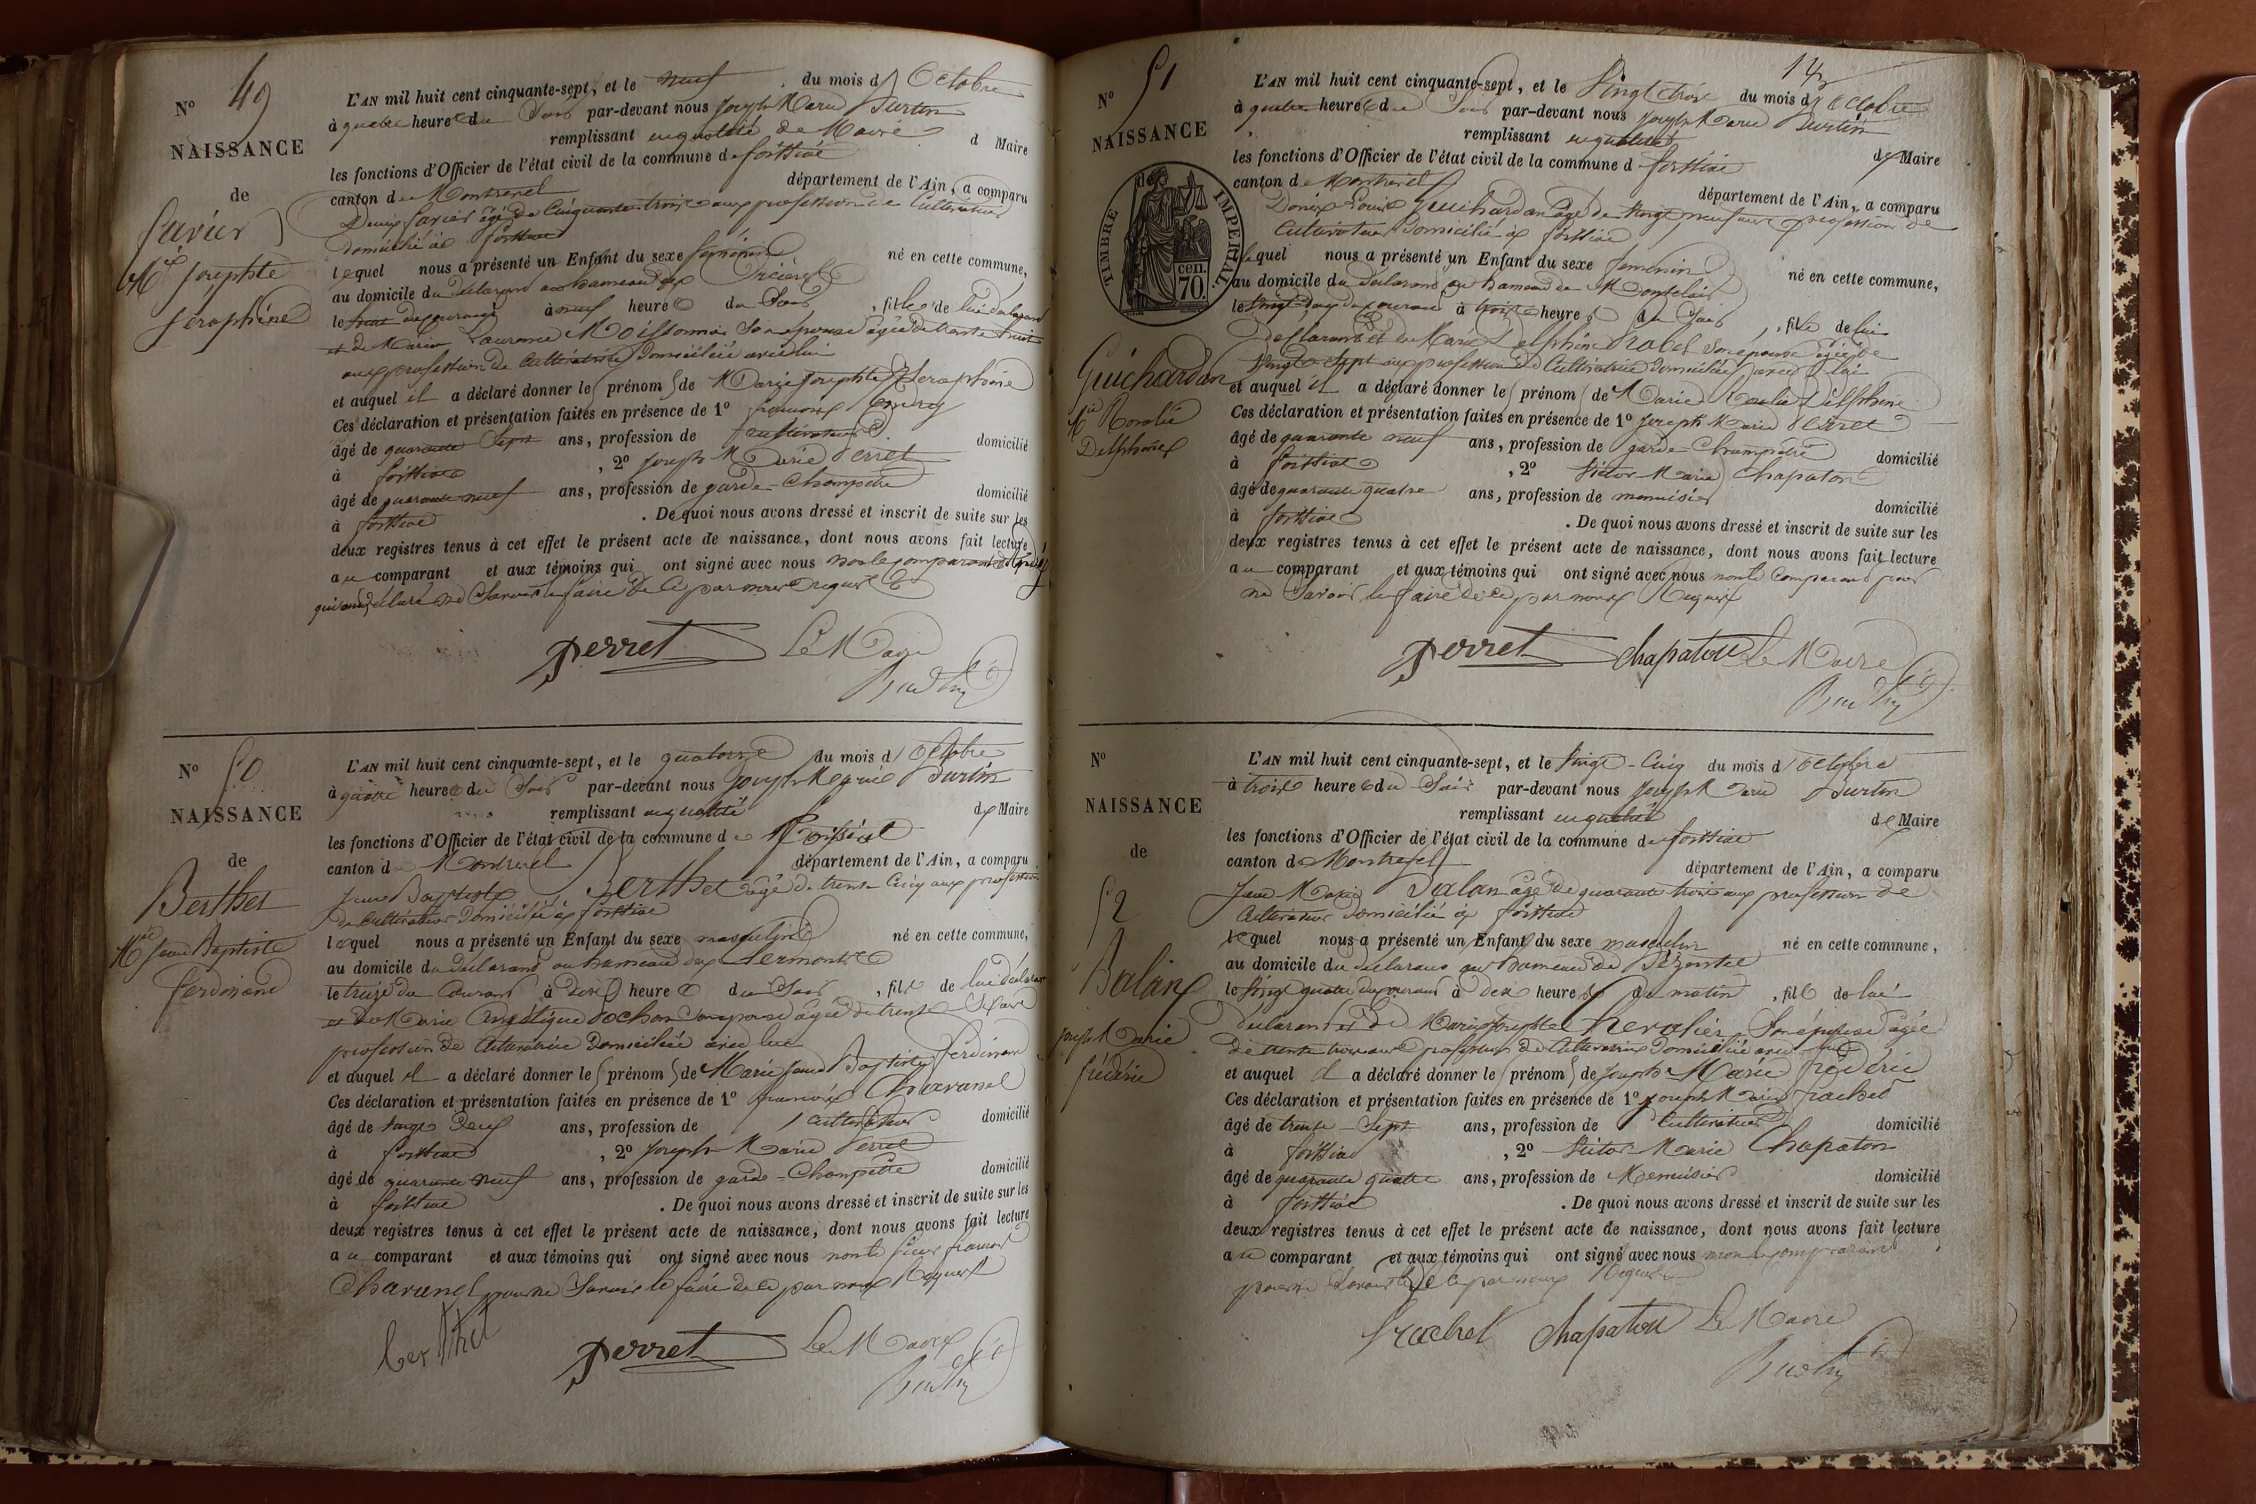 N° 49
NAISSANCE
de
Mie Josephte
Séraphine
L'AN mil huit cent cinquante-sept, et le neuf du mois d'Octobre
à quatre heures du Soir par-devant nous Joseph Marie Burtin
remplissant en qualité de Maire d Maire
les fonctions d'Officier de l'état civil de la commune de foissiat
canton de Montrevel département de l'Ain, a comparu
Denis âgé de Cinquante trois ans profession de Cultivateur
domicilié à foissiat
lequel nous a présenté un Enfant du sexe féminin né en cette commune,
au domicile du déclarant au hameau des
le huit du courant à neuf heures du Soir, fille de lui déclarant
et de Marie Laurence Son épouse âgée de trente huit
ans profession de Cultivatrice Domiciliée avec lui
et auquel il a déclaré donner les prénoms de Marie Josephte Séraphine
Ces déclaration et présentation faites en présence de 1° françois
âgé de quarante Sept ans, profession de Cultivateur domicilié
à foissiat, 2° Joseph Marie Perret
âgé de quarante neuf ans, profession de garde-Champêtre domicilié
à foissiat. De quoi nous avons dressé et inscrit de suite sur les
deux registres tenus à cet effet le présent acte de naissance, dont nous avons fait lecture
au comparant et aux témoins qui ont signé avec nous non le comparant
qui ont déclaré ne Savoir le faire de ce par nous requis
Perret Le Maire
Burtin
N° 50
NAISSANCE
de
Berthet
Mie Jean Baptiste
ferdinand
L'AN mil huit cent cinquante-sept, et le quatorze du mois d'Octobre
à quatre heures du Soir par-devant nous Joseph Marie Burtin
remplissant en qualité de Maire
les fonctions d'Officier de l'état civil de la commune de foissiat
canton de Montrevel département de l'Ain, a comparu
Jean Baptiste Berthet âgé de trente Cinq ans profession
de Cultivateur Domicilié à foissiat
lequel nous a présenté un Enfant du sexe masculin né en cette commune,
au domicile du déclarant au hameau des
le treize du Courant à Dix heures du Soir, fils de lui déclarant
et de Marie Angélique Son épouse âgée de trente ans
profession de Cultivatrice Domiciliée avec lui
et auquel il a déclaré donner les prénoms de Marie Jean Baptiste ferdinand
Ces déclaration et présentation faites en présence de 1° françois Charanel
âgé de Vingt Deux ans, profession de Cultivateur domicilié
à foissiat, 2° Joseph Marie Perret
âgé de quarante neuf ans, profession de garde-Champêtre domicilié
à foissiat. De quoi nous avons dressé et inscrit de suite sur les
deux registres tenus à cet effet le présent acte de naissance, dont nous avons fait lecture
au comparant et aux témoins qui ont signé avec nous non le Sieur françois
Charanel pour ne Savoir le faire de ce par nous Requis
berthet Perret Le Maire
Burtin
N° 51
NAISSANCE
de
TIMBRE IMPERIAL
70 cen.
Guichardan
Mie Rosalie
Delphine
L'AN mil huit cent cinquante-sept, et le Vingt trois du mois d'Octobre
à quatre heures du Soir par-devant nous Joseph Marie Burtin
remplissant en qualité de Maire
les fonctions d'Officier de l'état civil de la commune de foissiat
canton de Montrevel département de l'Ain, a comparu
Denis Louis Guichardan âgé de Vingt neuf ans profession de
Cultivateur Domicilié à foissiat
lequel nous a présenté un Enfant du sexe féminin né en cette commune,
au domicile du déclarant au hameau de
le Vingt deux du courant à trois heures du Soir, fille de lui
déclarant et de Marie Delphine Son épouse âgée de
Vingt Sept ans profession de Cultivatrice domiciliée avec lui
et auquel il a déclaré donner les prénoms de Marie Rosalie Delphine
Ces déclaration et présentation faites en présence de 1° Joseph Marie Perret
âgé de quarante neuf ans, profession de garde-Champêtre domicilié
à foissiat, 2° Victor Marie Chapaton
âgé de quarante quatre ans, profession de menuisier domicilié
à foissiat. De quoi nous avons dressé et inscrit de suite sur les
deux registres tenus à cet effet le présent acte de naissance, dont nous avons fait lecture
au comparant et aux témoins qui ont signé avec nous non le Comparant pour
ne Savoir le faire de ce par nous Requis
Perret Chapaton Le Maire
Burtin
N°
NAISSANCE
de
52
Balan
Joseph Marie
frédéric
L'AN mil huit cent cinquante-sept, et le Vingt-Cinq du mois d'Octobre
à trois heures du Soir par-devant nous Joseph Marie Burtin
remplissant en qualité de Maire
les fonctions d'Officier de l'état civil de la commune de foissiat
canton de Montrevel département de l'Ain, a comparu
Jean Marie Balan âgé de quarante trois ans profession de
Cultivateur Domicilié à foissiat
lequel nous a présenté un Enfant du sexe masculin né en cette commune,
au domicile du déclarant au hameau de
le Vingt quatre du courant à dix heures du matin, fils de lui
déclarant et de Marie Josephte Son épouse âgée
de trente trois ans profession de Cultivatrice Domiciliée avec lui
et auquel il a déclaré donner les prénoms de Joseph Marie frédéric
Ces déclaration et présentation faites en présence de 1° Joseph Marie
âgé de trente-Sept ans, profession de Cultivateur domicilié
à foissiat, 2° Victor Marie Chapaton
âgé de quarante quatre ans, profession de Menuisier domicilié
à foissiat. De quoi nous avons dressé et inscrit de suite sur les
deux registres tenus à cet effet le présent acte de naissance, dont nous avons fait lecture
au comparant et aux témoins qui ont signé avec nous non le comparant
pour ne Savoir le de ce par nous Requis
Chapaton Le Maire
Burtin